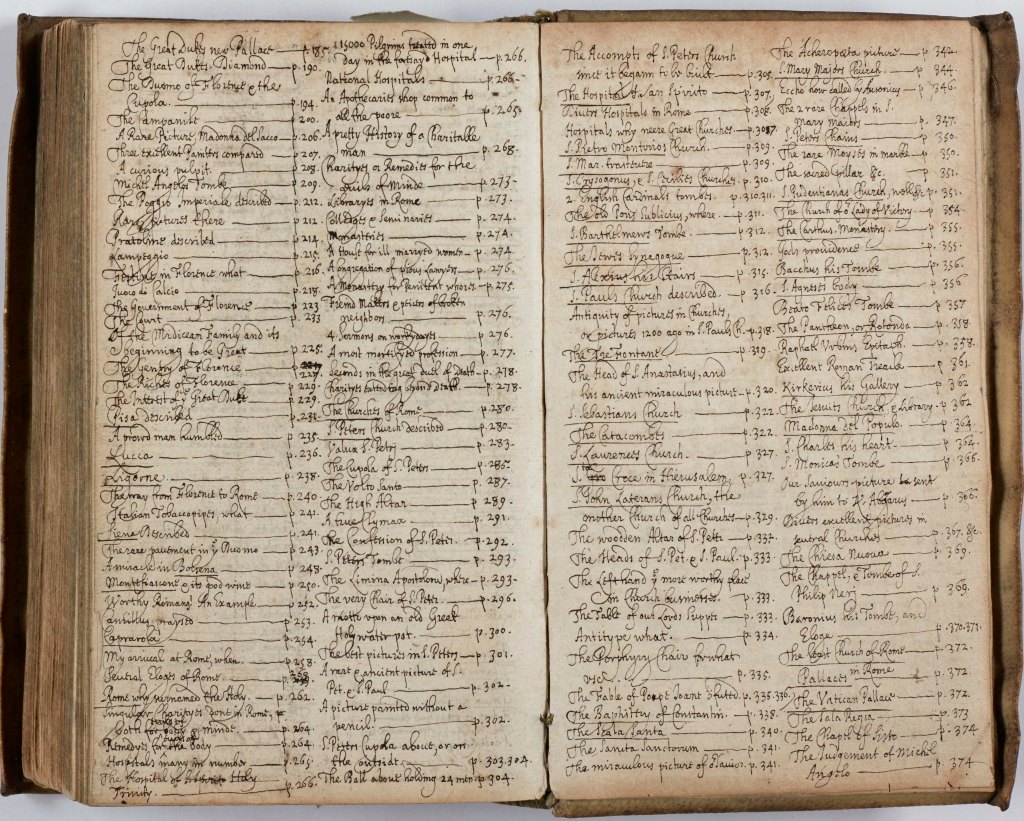 The Great Dukes new Pallace — p. 185.
The Great Dukes Diamond — p. 190.
The Duomo of Florence & the
Cupola. — p. 194.
The Campanile — p. 200.
A Rare Picture, Madonna del Sacco — p. 206.
Three excellent Painters compared — p. 207.
A curious pulpit. — p. 208.
Michel Angelos Tombe — p. 209.
The Poggio Imperiale described — p. 212.
Rare Pictures there — p. 212.
Pratoline described — p. 214.
Lampeggio — p. 215.
Festine in Florence what — p. 216.
Giuoco di Calcio — p. 218.
The Government of Florence — p. 223
The Court — p. 233
Of the Medicean Family and its
beginning to be Great — p. 225.
The Gentry of Florence — p. 227.
The Riches of Florence — p. 229.
The Interest of ye Great Duke — p. 229.
Pisa described — p. 231.
A prowd man humbled — p. 235.
Lucca — p. 236.
Ligorne — p. 238.
The way from Florence to Rome — p. 240.
Italian Tobaccopipes, what — p. 241.
Siena Described — p. 241.
The rare pavement in ye Duomo — p. 243.
A miracle in Bolsena — p. 248.
Montefiascone & its good wine — p. 250.
Worthy Romans! An Example — p. 252.
— p. 253.
Caprarola — p. 254.
My arrival at Rome, when. — p. 258.
Several Eloges of Rome — p.
Rome why surnamed the Holy. — p. 262.
Singular charityes done in Rome, to
both body & minde. — p. 264.
Remedyes for the body — p. 264.
Hospitals many in number — p. 265.
The Hospital of Holy
Trinity. — p. 266.
115000 Pilgrims treated in one
day in the forsayd Hospital — p. 266.
National Hospitals — p. 266.
An Apothecaries shop common to
all the poore — p. 265.
A pretty History of a Charitable
man — p. 268.
Charityes or Remedies for the
evils of Minde — p. 273.
Libraryes in Rome — p. 273.
Colledges & Seminaries — p. 274.
Monasteries — p. 274.
A House for ill maryed women — p. 274
A congregation of pious Lawyers — p. 276.
A Monastery for penitent whores — p. 275.
Friend Makers & peecers of broken
neighbors — p. 276.
4 Sermons on workydayes — p. 276.
A most mortifyed profession. — p. 277.
Seconds in the great duel of death — p. 278.
Charityes extending beyond Death — p. 278.
The Churches of Rome — p. 280.
S. Peters Church described — p. 280.
Salita S. Petri — p. 283.
The Cupola of S. Peters — p. 286.
The Volto Santo — p. 287.
The High Altar — p. 289.
A true Clymax — p. 291.
The Confession of S. Peter. — p. 292.
S. Peters Tombe — p. 293.
The Limina Apostolorum, where — p. 293.
The very Chair of S. Peter. — p. 296.
A motto upon an old Greek
Holy water pot. — p. 300.
The best pictures in S. Peters — p. 301.
A rare & ancient picture of S.
Pet. & S. Paul — p. 302.
A picture painted without a
pencil — p. 302.
S. Peters Cupola above, or on
the outside — p. 303. 304.
The Ball above holding 24 men p. 304.
The Accompts of S. Peters Church
since it began to be built — p. 305.
The Hospital of San Spirito — p. 307.
Rivers Hospitals in Rome — p. 308.
Hospitals why neere Great Churches — p. 307.
S. Pietro Montorios Church. — p. 309.
S. Mar. trastevere — p. 309.
S. Grysogonus, & S. Cecilies Churches. p. 310.
2. English Cardinals tombes. p. 310, 311.
The old Pons Sublicius, where — p. 311.
S. Bartholmews Tombe. — p. 312.
The Jewes Synagogue — p. 312.
S. Alexius his Stairs — p. 315.
S. Pauls Church described. — p. 316.
Antiquity of pictures in Churches,
or pictures 1200 ago in S. Pauls Ch. p. 318.
The Tre Fontane — p. 319.
The Head of S. Anastasius, and
his ancient miraculous picture — p. 320.
S. Sebastians Church — p. 322
The Catacombes — p. 322.
S. Laurences Church. — p. 327.
S. Croce in Hierusalem — p. 327.
S. John Laterans Church, the
mother Church of all Churches — p. 329.
The wooden Altar of S. Peter — p. 332.
The Heads of S. Pet. & S. Paul. p. 333
The Left hand ye more worthy place
in Church — p. 333.
The Table of our Lords Supper — p. 333.
Antitype what. — p. 334.
The Porphyry Chair for what
use. — p. 335.
The Fable of Pope Joane refuted. p. 335. 336.
The Baptistry of Constantin. — p. 338.
The Scala Santa — p. 340.
The Sancta Sanctorum — p. 341.
The miraculous picture of or Savior. p. 341.
The Acheropoeta picture — p. 342.
S. Mary Majors Church. — p. 344.
Eccho how called by Ausonius — p. 346.
The 2 rare Chappels in S.
Mary Majors — p. 347.
S. Peters Chains — p. 350.
The rare Moyses in marble — p. 350.
The sacred Pillar &c. — p. 351.
S. Pudentianas Church, — p. 351.
The Church of or Lady of Victory. — p. 354.
The Carthus. Monastery. — p. 355.
Gods providence — p. 355.
Bacchus his Tombe — p. 356.
S. Agneses body — p. 356
Beato Felices Tombe — p. 357
The Pantheon, or Rotonda — p. 358.
Raphael Urbins Epitaph. — p. 358.
Excellent Roman Treacle — p. 361.
Kirkerius his Gallery — p. 362
The Jesuits Church & Library. p. 362
Madonna del Populo. — p. 364.
S. Charles his heart. — p. 364.
S. Monicas Tombe — p. 366.
Our Saviours picture sent
by him to K. Abgarus — p. 366.
Divers excellent pictures in
several Churches — p. 367. &c.
The Chiesa Nuova — p. 369.
The Chappel, & Tombe of S.
Philip Neri — p. 369.
Baronius his Tombe, and
Eloge — p. 370. 371.
The best Church of Rome — p. 372.
Pallaces in Rome — p. 372.
The Vatican Pallace — p. 372.
The Sala Regia — p. 373
The Chapel of Sisto — p. 374
The Judgement of Michel
Angelo — p. 374